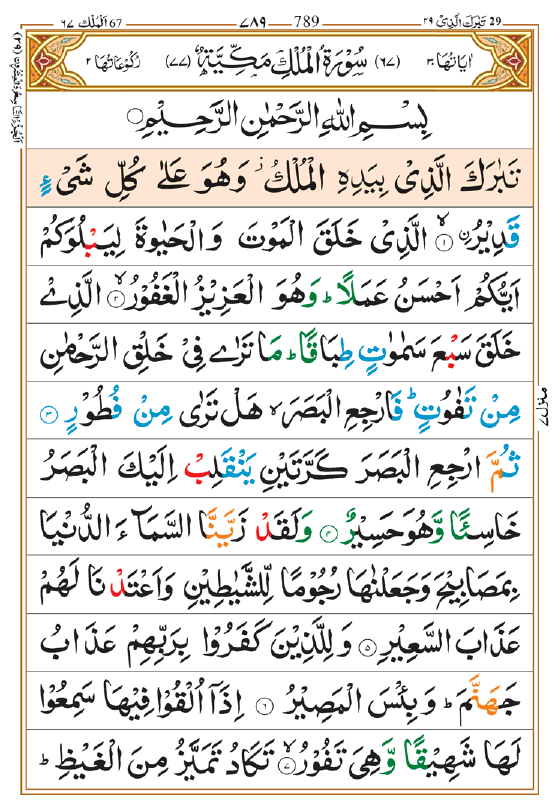 29 تَبٰرَكَ الَّذِیْ ٢٩ 789 ٧٨٩ 67 اَلْمُلْك ٦٧
اٰيَاتُهَا ٣٠ (٦٧) سُوْرَةُ الْمُلْكِ مَكِّيَّةٌ (٧٧) رُكُوْعَاتُهَا ٢
بِسْمِ اللهِ الرَّحْمٰنِ الرَّحِيْمِ
تَبٰرَكَ الَّذِیْ بِيَدِهِ الْمُلْكُ ز وَهُوَ عَلٰى كُلِّ شَیْءٍ
قَدِيْرُ ن ۙ ١ الَّذِیْ خَلَقَ الْمَوْتَ وَالْحَيٰوةَ لِيَبْلُوَكُمْ
اَيُّكُمْ اَحْسَنُ عَمَلًا ؕ وَهُوَ الْعَزِيْزُ الْغَفُوْرُ ۙ ٢ الَّذِیْ
خَلَقَ سَبْعَ سَمٰوٰتٍ طِبَاقًا ؕ مَا تَرٰى فِیْ خَلْقِ الرَّحْمٰنِ
مِنْ تَفٰوُتٍ ؕ فَارْجِعِ الْبَصَرَ ۙ هَلْ تَرٰى مِنْ فُطُوْرٍ ٣
ثُمَّ ارْجِعِ الْبَصَرَ كَرَّتَيْنِ يَنْقَلِبْ اِلَيْكَ الْبَصَرُ
خَاسِئًا وَّهُوَ حَسِيْرٌ ٤ وَلَقَدْ زَيَّنَّا السَّمَآءَ الدُّنْيَا
بِمَصَابِيْحَ وَجَعَلْنٰهَا رُجُوْمًا لِّلشَّيٰطِيْنِ وَاَعْتَدْنَا لَهُمْ
عَذَابَ السَّعِيْرِ ٥ وَلِلَّذِيْنَ كَفَرُوْا بِرَبِّهِمْ عَذَابُ
جَهَنَّمَ ؕ وَبِئْسَ الْمَصِيْرُ ٦ اِذَآ اُلْقُوْا فِيْهَا سَمِعُوْا
لَهَا شَهِيْقًا وَّهِیَ تَفُوْرُ ۙ ٧ تَكَادُ تَمَيَّزُ مِنَ الْغَيْظِ ؕ
منزل ٧